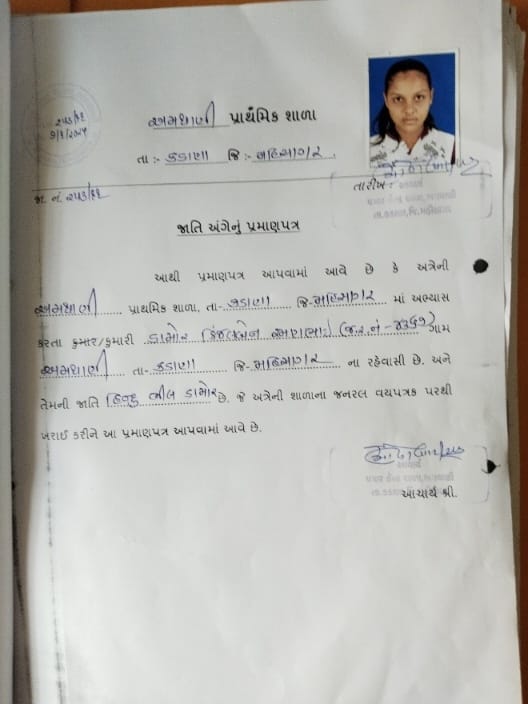 ૨૫૩/૬૬
પ્રાથમિક શાળા
તા :- કડાણા જિ :- મહિસાગર
જા. નં. ૨૫૩/૬૬
તારીખ :
જાતિ અંગેનું પ્રમાણપત્ર
આથી પ્રમાણપત્ર આપવામાં આવે છે કે અત્રેની
પ્રાથમિક શાળા, તા- કડાણા જિ- મહિસાગર માં અભ્યાસ
કરતા કુમાર/કુમારી ડામોર કિંજલબેન ગામ
તા- કડાણા જિ- મહિસાગર ના રહેવાસી છે. અને
તેમની જાતિ હિન્દુ ભીલ ડામોર છે. જે અત્રેની શાળાના જનરલ વયપત્રક પરથી
ખરાઈ કરીને આ પ્રમાણપત્ર આપવામાં આવે છે.
આચાર્ય
આચાર્ય શ્રી.